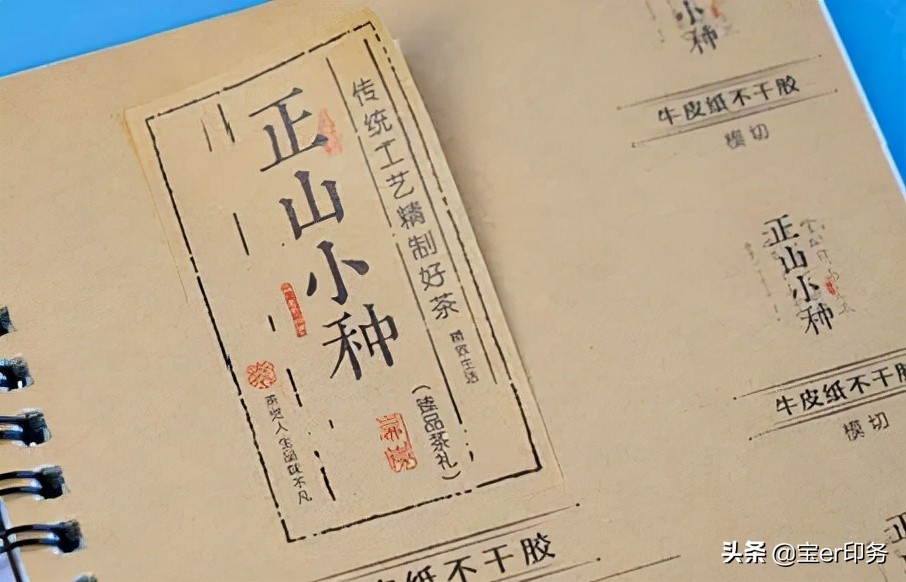 正山小种
传统工艺精制好茶
(臻品茶礼)
小种
牛皮纸不干胶
模切
正山小种
牛皮纸不干胶
模切
皮纸不干胶
正
头条 @宝er印务